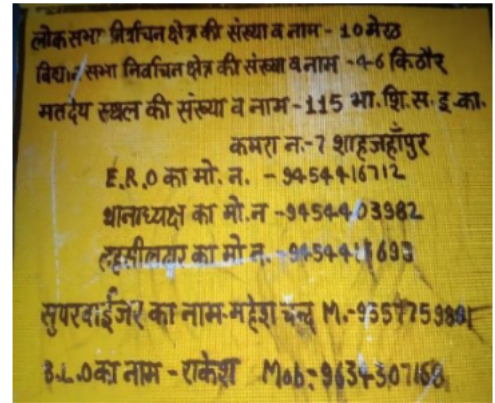 लोकसभा निर्वाचन क्षेत्र की संख्या व नाम - 10 मेरठ
विधानसभा निर्वाचन क्षेत्र की संख्या व नाम - 46 किठौर
मतदेय स्थल की संख्या व नाम - 115 भा.शि.स.इ.का.
कमरा न.-7 शाहजहाँपुर
E.R.O का मो. न. - 9454416712
थानाध्यक्ष का मो.न - 9454403982
तहसीलदार का मो न. -
सुपरवाईजर का नाम-महेश चन्द्र M.-
B.L.O का नाम - राकेश Mob:- 9634307168